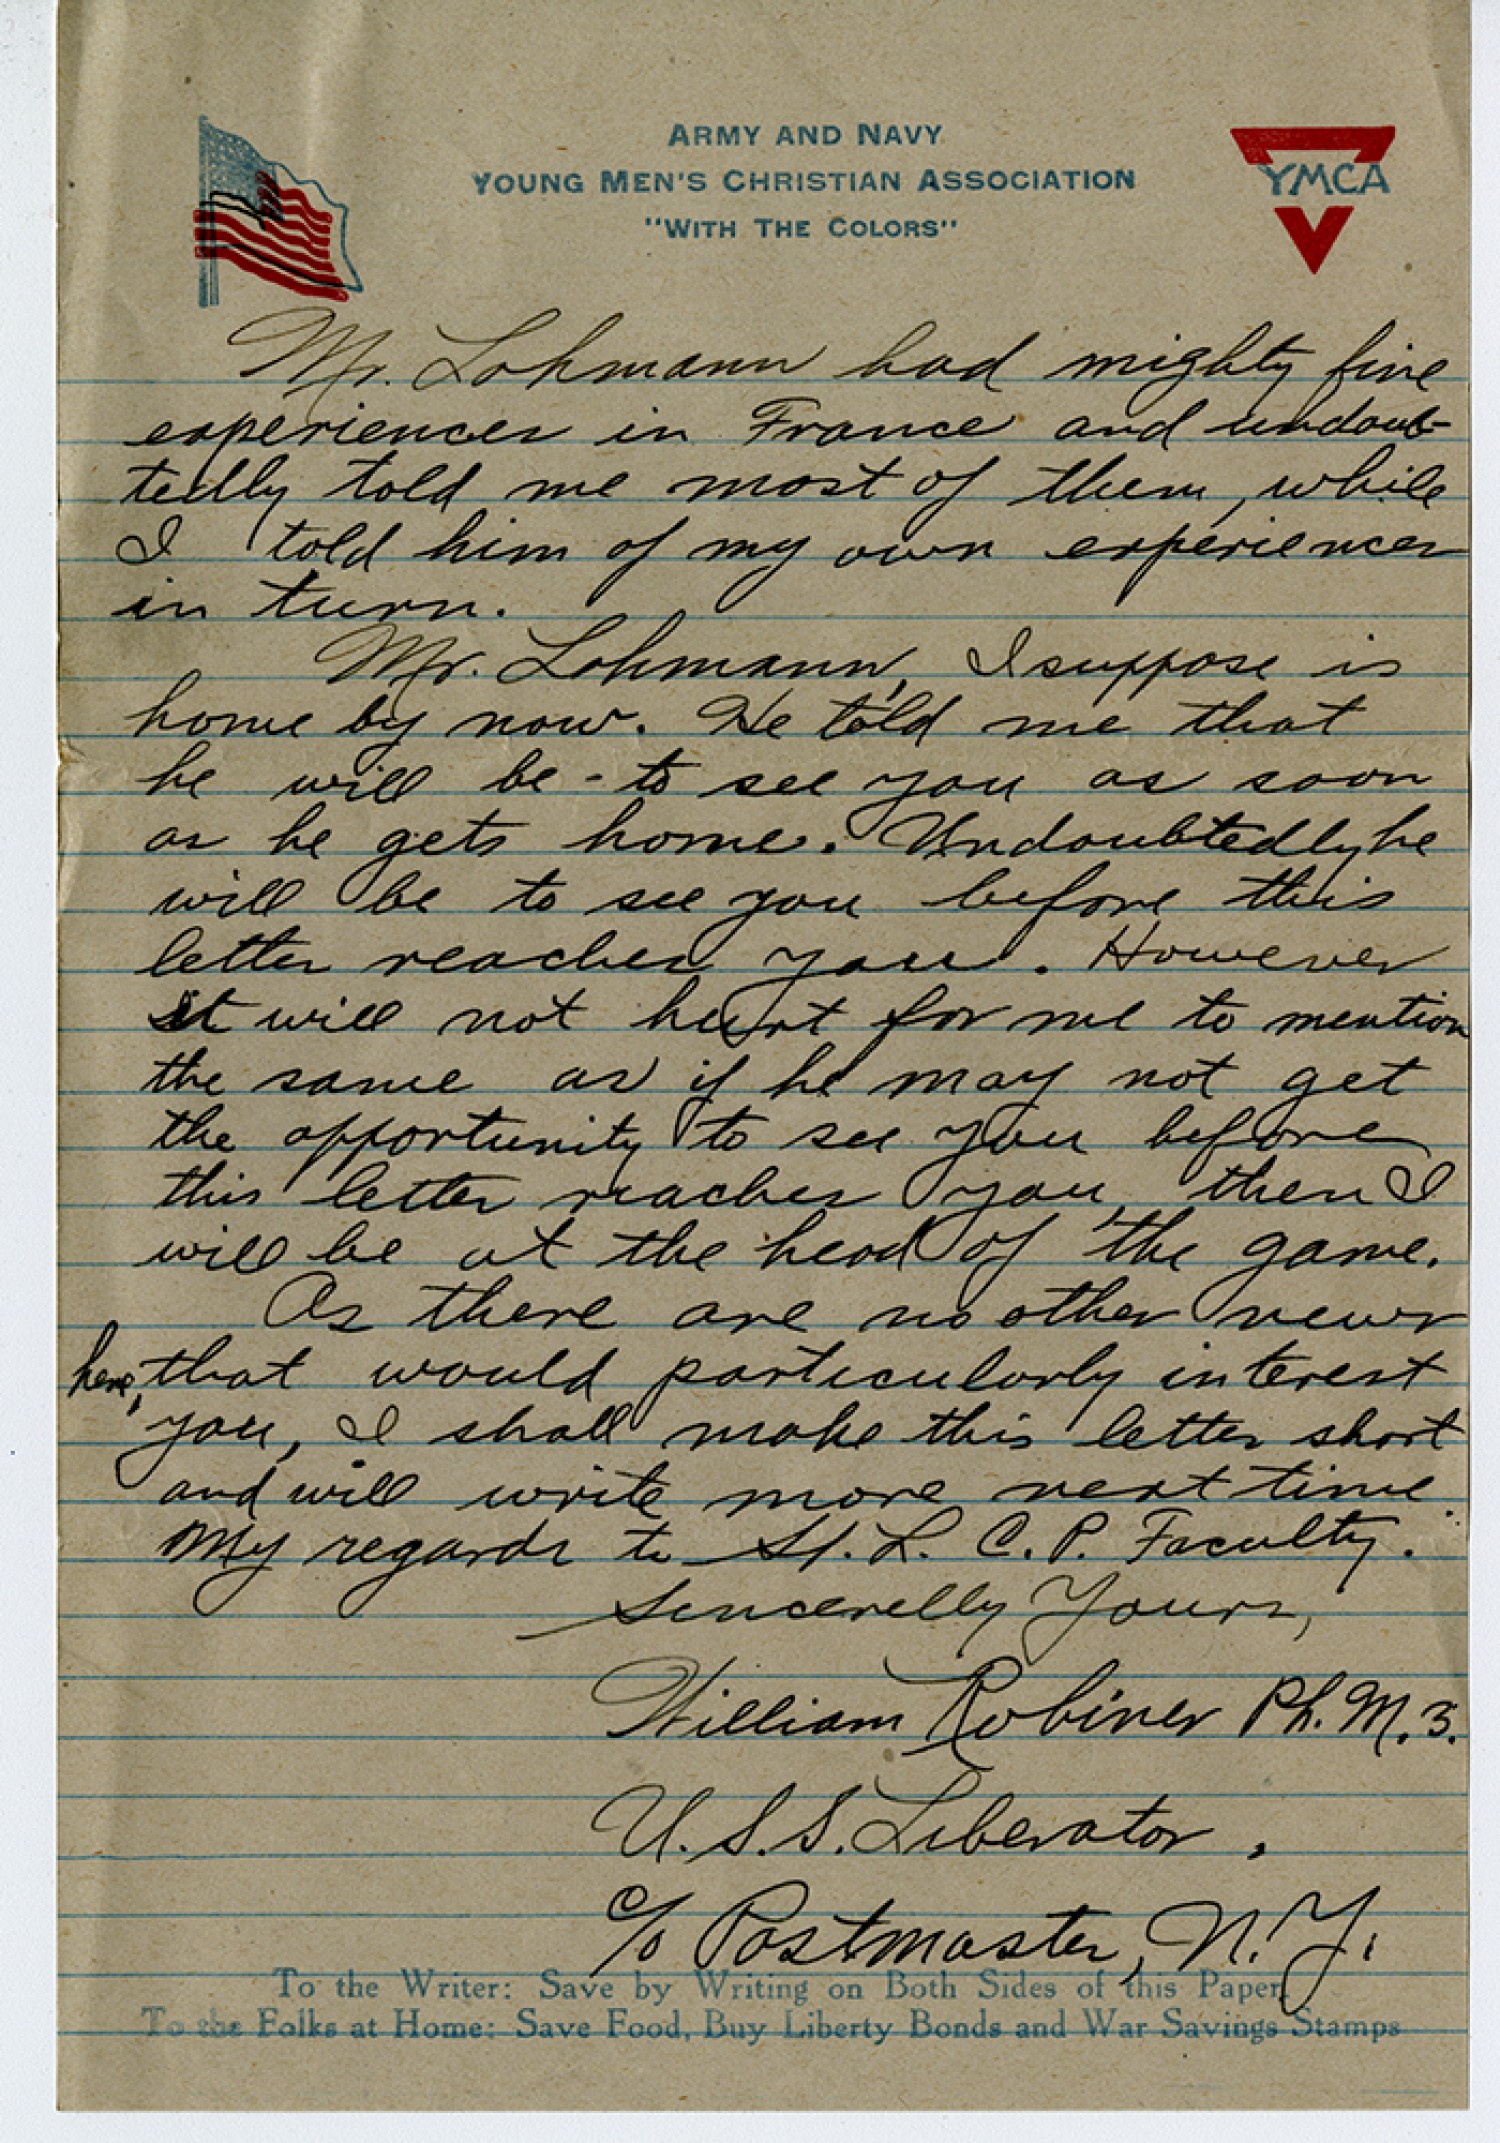 ARMY AND NAVY
YOUNG MEN'S CHRISTIAN ASSOCIATION
"WITH THE COLORS"
YMCA
Mr. Lohmann had mighty fine
experiences in France and undoub-
tedly told me most of them, while
I told him of my own experiences
in turn.
Mr. Lohmann, I suppose is
home by now. He told me that
he will be - to see you as soon
as he gets home. Undoubtedly he
will be to see you before this
letter reaches you. However
it will not hurt for me to mention
the same as if he may not get
the opportunity to see you before
this letter reaches you, then I
will be at the head of the game.
As there are no other news
here, that would particularly interest
you, I shall make this letter short
and will write more next time.
My regards to St. L. C. P. Faculty.
Sincerelly Yours,
William Robiner Ph. M. 3.
U.S.S. Liberator,
c/o Postmaster, N.Y.
To the Writer: Save by Writing on Both Sides of this Paper.
To the Folks at Home: Save Food, Buy Liberty Bonds and War Savings Stamps